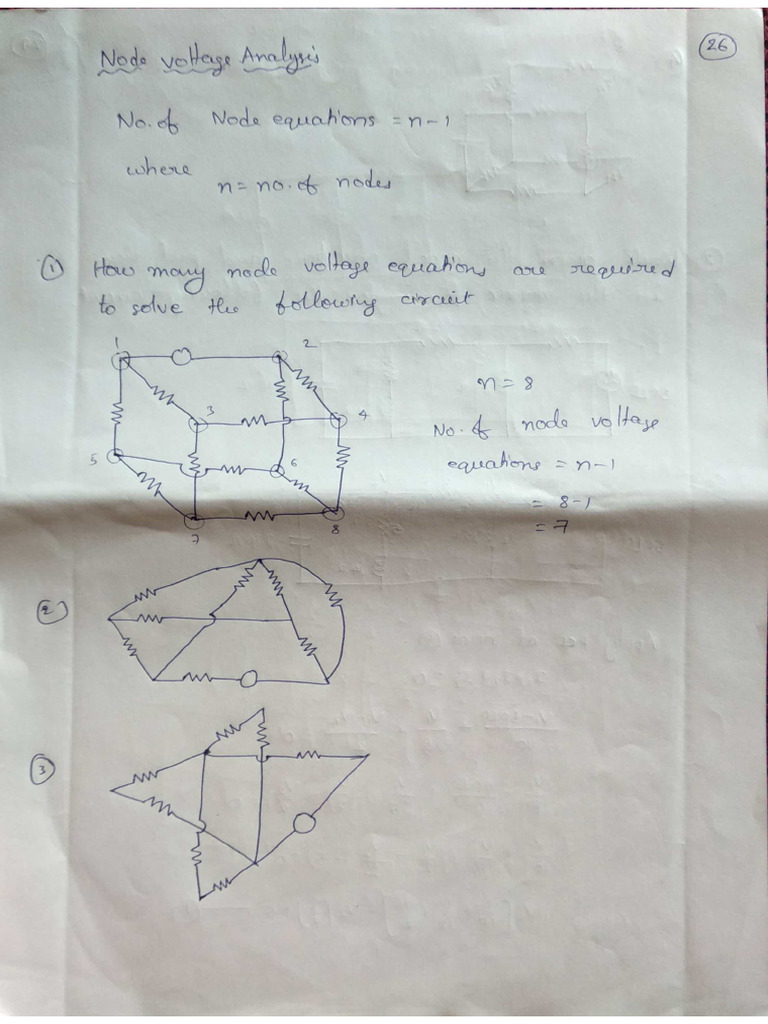 26
Node voltage Analysis
No. of Node equations = n-1
where n = no. of nodes
① How many node voltage equations are required
to solve the following circuit
1 2
3 4
5 6
7 8
n = 8
No. of node voltage
equations = n-1
= 8-1
= 7
②
③